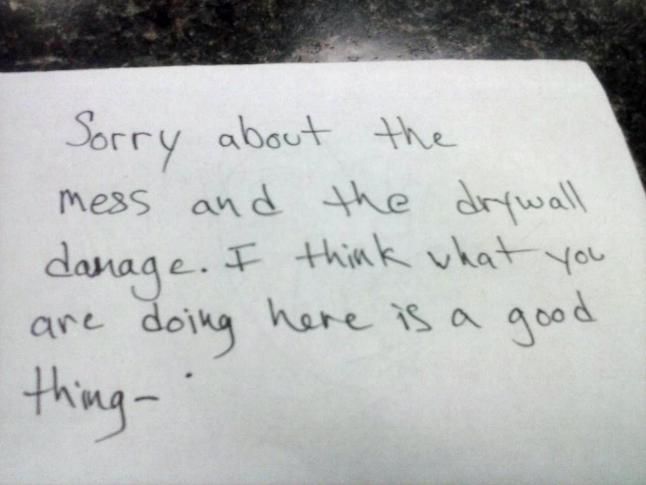 Sorry about the
mess and the drywall
damage. I think what you
are doing here is a good
thing-